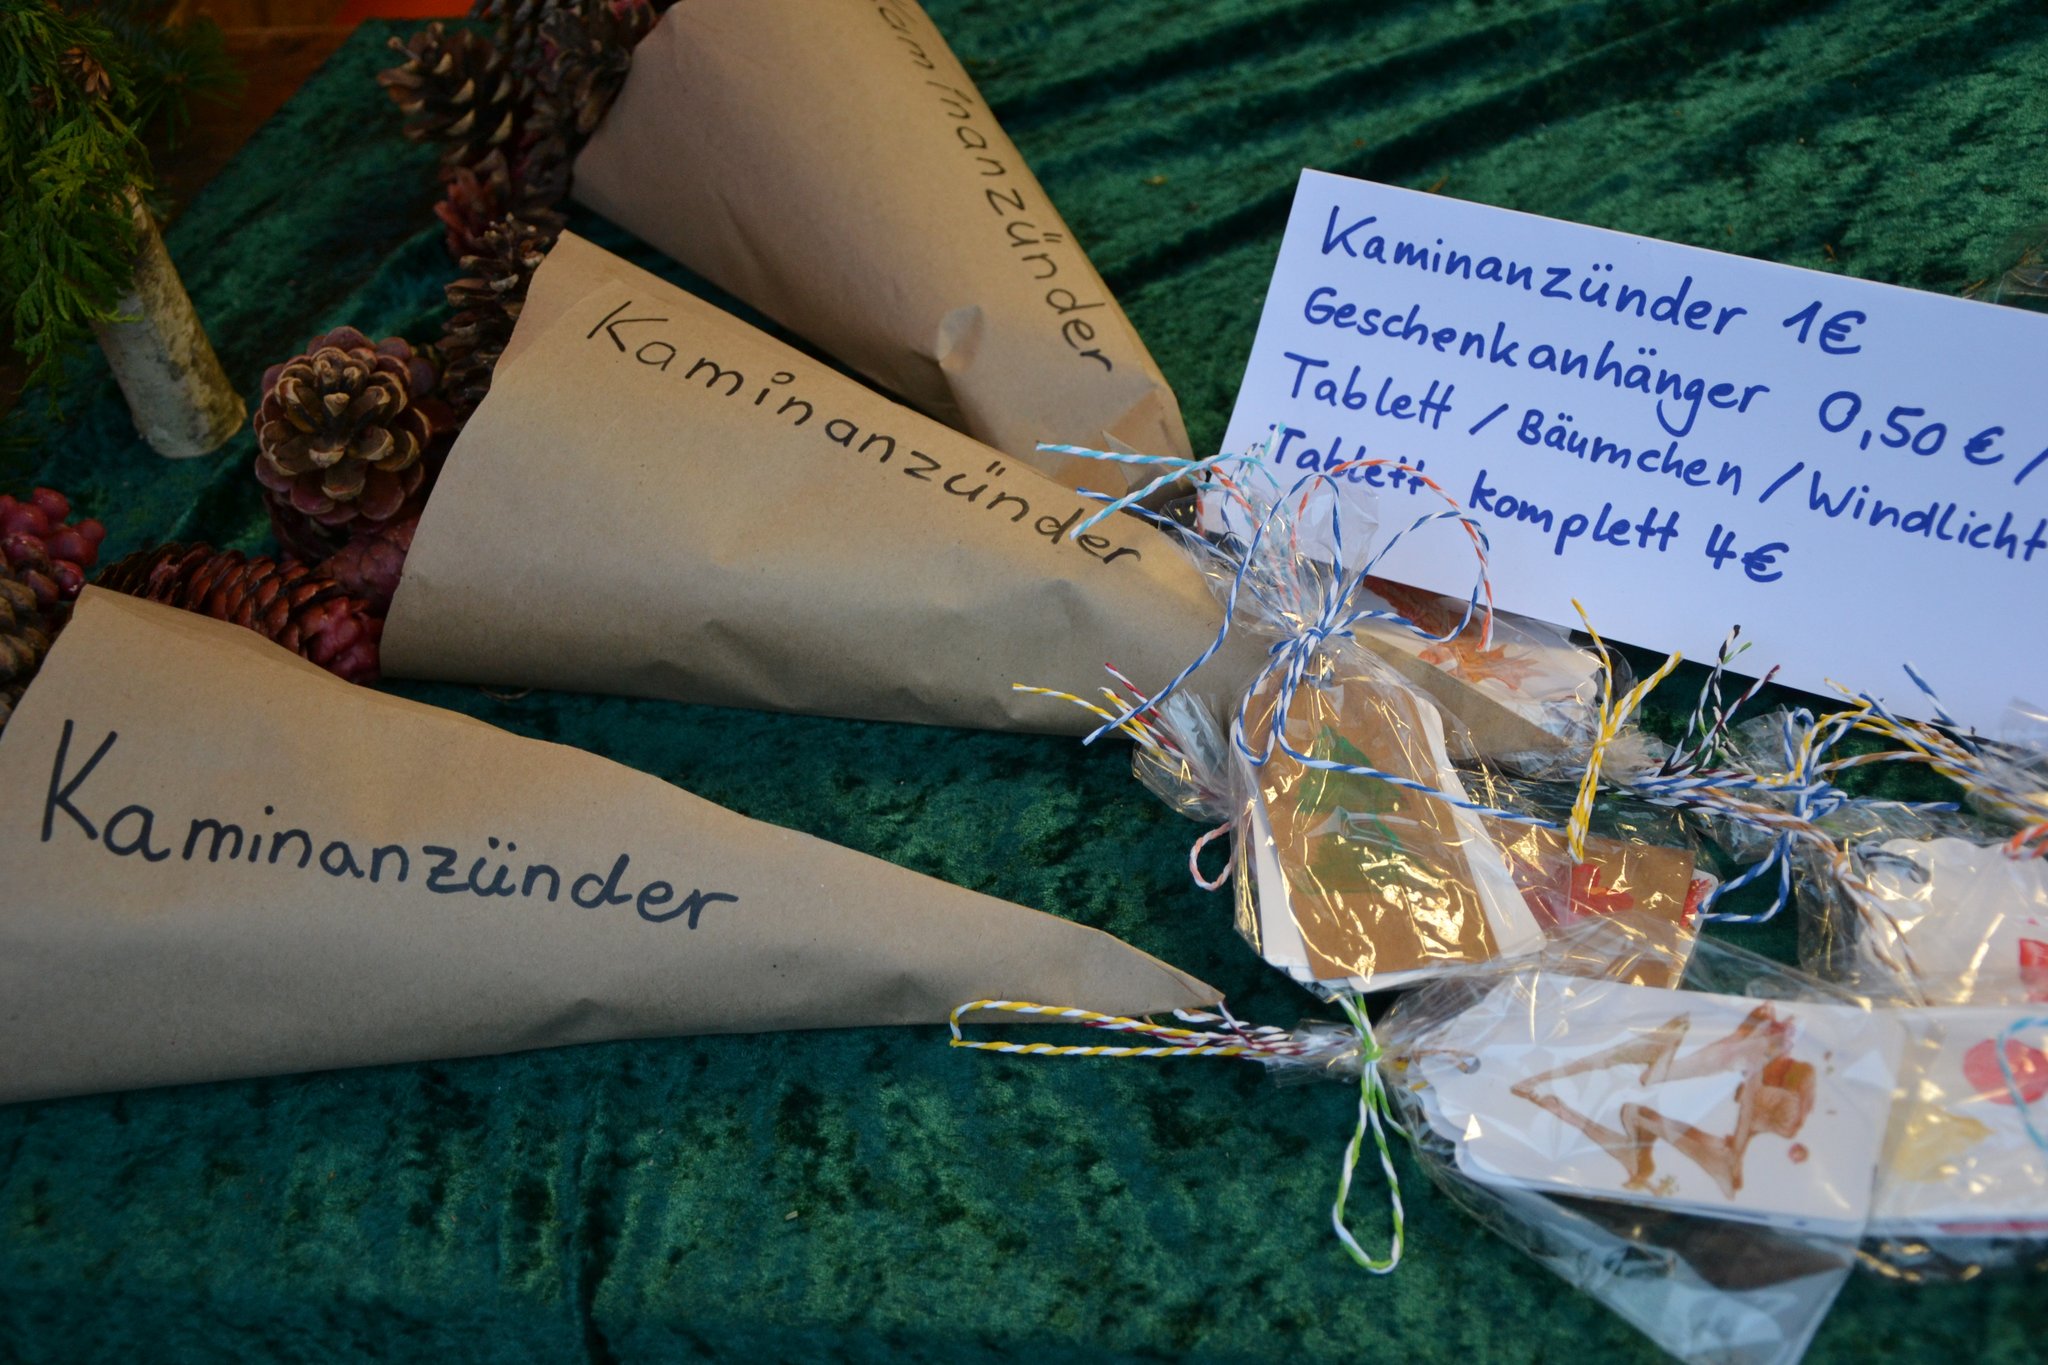 Kaminanzünder
Kaminanzünder
Kaminanzünder
Kaminanzünder 1€
Geschenkanhänger 0,50 € /
Tablett / Bäumchen / Windlicht
Tablett komplett 4€